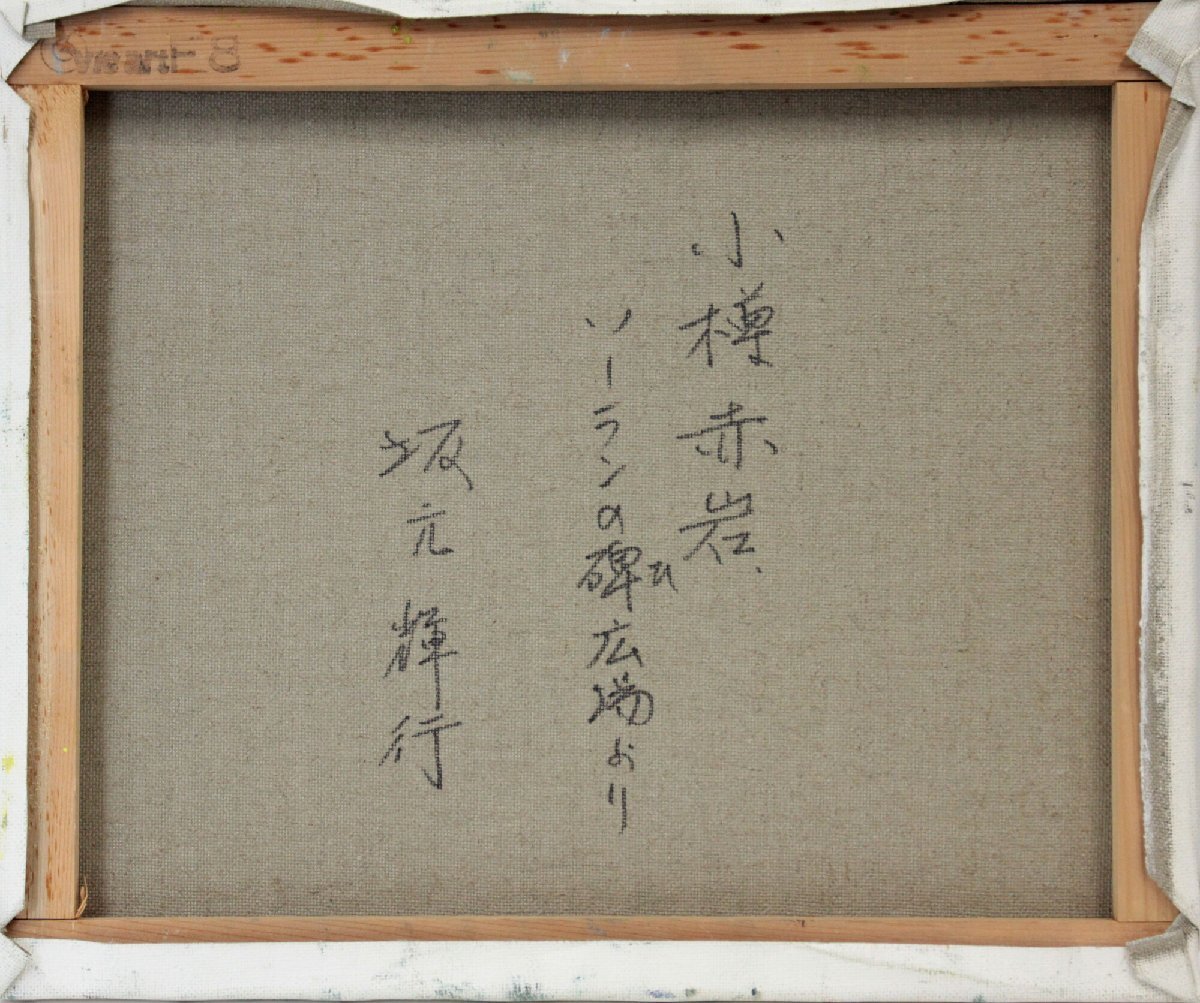 小樽赤岩、
ソーランの碑広場より
ひ
坂元輝行
F8